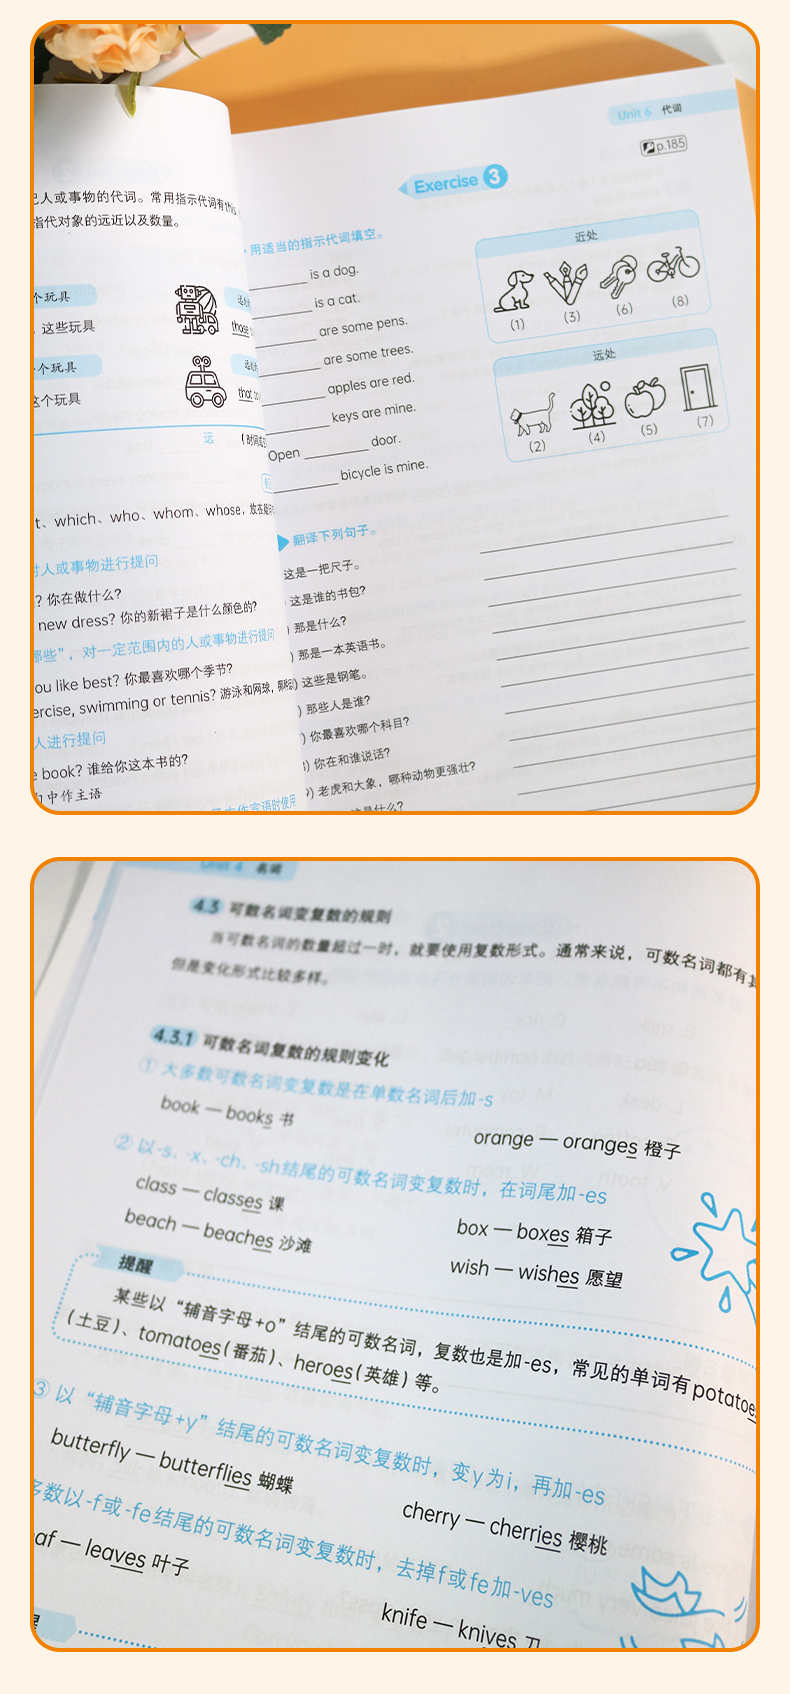 人或事物的代词。常用指示代词有this
指代对象的远近以及数量。
个玩具
这些玩具
个玩具
这个玩具
those
that
远
t、which、who、whom、whose，放在
对人或事物进行提问
? 你在做什么?
new dress? 你的新裙子是什么颜色的?
哪些”，对一定范围内的人或事物进行提问
ou like best? 你最喜欢哪个季节?
ercise, swimming or tennis? 游泳和网球，
人进行提问
e book? 谁给你这本书的?
句中作主语
Unit 6 代词
p.185
Exercise 3
用适当的指示代词填空。
is a dog.
is a cat.
are some pens.
are some trees.
apples are red.
keys are mine.
Open door.
bicycle is mine.
近处
(1) (3) (6) (8)
远处
(2) (4) (5) (7)
翻译下列句子。
这是一把尺子。
这是谁的书包?
) 那是什么?
) 那是一本英语书。
) 这些是钢笔。
) 那些人是谁?
) 你最喜欢哪个科目?
) 你在和谁说话?
) 老虎和大象，哪种动物更强壮?
是什么?
Unit 4 名词
4.3 可数名词变复数的规则
当可数名词的数量超过一时，就要使用复数形式。通常来说，可数名词都有其
但是变化形式比较多样。
4.3.1 可数名词复数的规则变化
① 大多数可数名词变复数是在单数名词后加-s
book — books 书
orange — oranges 橙子
② 以-s、-x、-ch、-sh结尾的可数名词变复数时，在词尾加-es
class — classes 课
box — boxes 箱子
beach — beaches 沙滩
wish — wishes 愿望
提醒
某些以“辅音字母+o”结尾的可数名词，复数也是加-es，常见的单词有potatoes
(土豆)、tomatoes(番茄)、heroes(英雄) 等。
③ 以“辅音字母+y”结尾的可数名词变复数时，变y为i，再加-es
butterfly — butterflies 蝴蝶
cherry — cherries 樱桃
多数以-f或-fe结尾的可数名词变复数时，去掉f或fe加-ves
eaf — leaves 叶子
knife — knives 刀